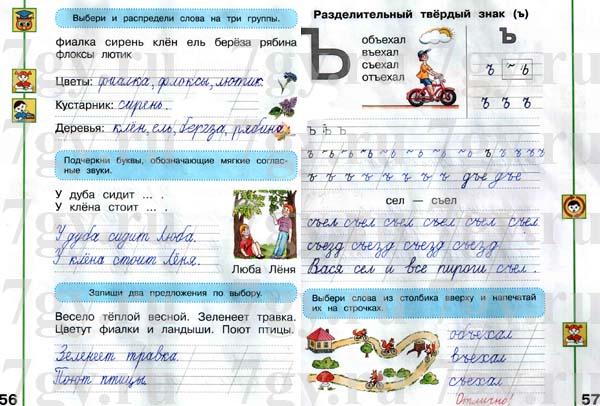 Выбери и распредели слова на три группы.
фиалка сирень клён ель берёза рябина
флоксы лютик
Цветы: фиалка, флоксы, лютик.
Кустарник: сирень.
Деревья: клён, ель, берёза, рябина
Подчеркни буквы, обозначающие мягкие соглас-
ные звуки.
У дуба сидит ... .
У клёна стоит ... .
У дуба сидит Люба.
У клёна стоит Лёня.
Люба Лёня
Запиши два предложения по выбору.
Весело тёплой весной. Зеленеет травка.
Цветут фиалки и ландыши. Поют птицы.
Зеленеет травка.
Поют птицы.
56
Разделительный твёрдый знак (ъ)
Ъ
объехал
въехал
съехал
отъехал
Ъ
ъ ~ ъ
ъ ъ ъ
ъ ъ ъ
ъ ъ ~ ъ ~ ъ ~ ъ ~ ъ ~ ъ ~ ъ ъ ъ ъ ъ
ъ ъ ъ ъ ъ ъ ъ ъ ъ ъе ъе
сел — съел
съел съел съел съел съел съел
съезд съезд съезд съезд
Вася сел и все пироги съел.
Выбери слова из столбика вверху и напечатай
их на строчках.
объехал
въехал
съехал
Отлично!
57
7gy.ru